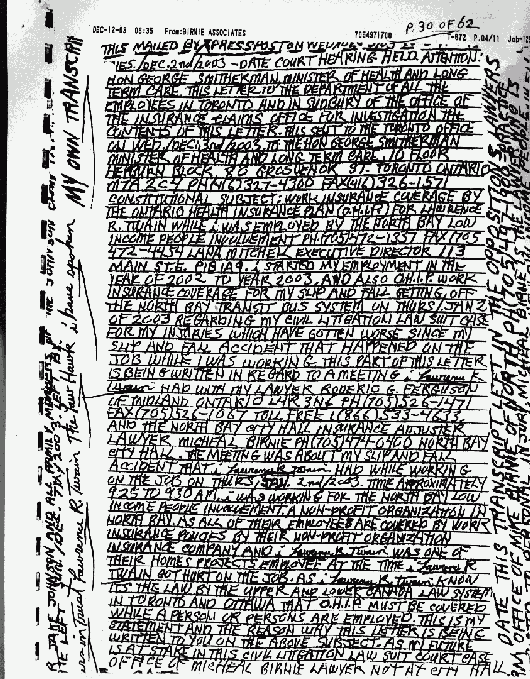 DEC-12-03 05:35 From:BIRNIE ASSOCIATES 7054971708 T-872 P.04/11 Job-
P.30 OF 62
THIS MAILED BY XPRESSPOST ON WED
YES/DEC.2nd/2003-DATE COURT HEARING HELD. ATTENTION:
HON GEORGE SMITHERMAN MINISTER OF HEALTH AND LONG
TERM CARE THIS LETTER TO THE DEPARTMENT OF ALL THE
EMPLOYEES IN TORONTO AND IN SUDBURY OF THE OFFICE OF
THE INSURANCE CLAIMS OFFICE FOR INVESTIGATION THE
CONTENTS OF THIS LETTER. THIS SENT TO THE TORONTO OFFICE
ON WED/DEC/3nd/2003. TO THE HON GEORGE SMITHERMAN
MINISTER OF HEALTH AND LONG TERM CARE, 10 FLOOR
HEPBURN BLOCK. 80 GROSVENOR ST. TORONTO ONTARIO
M7A 2C4 PH(416)327-4300 FAX(416)326-1571
CONSTITUTIONAL SUBJECT: WORK INSURANCE COVERAGE BY
THE ONTARIO HEALTH INSURANCE PLAN (O.H.I.P.) FOR LAWRENCE
R. TWAIN WHILE i WAS EMPLOYED BY THE NORTH BAY LOW
INCOME PEOPLE INVOLVEMENT PH.(705)472-1337 FAX(705)
472-4454 LANA MITCHELL EXECUTIVE DIRECTOR 113
MAIN ST.E. P1B 1A9. i STARTED MY EMPLOYMENT IN THE
YEAR OF 2002 TO YEAR 2003 AND ALSO O.H.I.P. WORK
INSURANCE COVERAGE FOR MY SLIP AND FALL GETTING OFF
THE NORTH BAY TRANSIT BUS SYSTEM ON THURS/JAN 2
OF 2003 REGARDING MY CIVIL LITIGATION LAW SUIT CASE
FOR MY INJURIES WHICH HAVE GOTTEN WORSE SINCE MY
SLIP AND FALL ACCIDENT THAT HAPPENED ON THE
JOB WHILE i WAS WORKING. THIS PART OF THIS LETTER
IS BEING WRITTEN IN REGARD TO A MEETING i Lawrence R.
Twain HAD WITH MY LAWYER RODERIC G. FERGUSON
OF MIDLAND ONTARIO L4R 3N6 PH(705)526-1471
FAX(705)526-1067 TOLL FREE 1(866)533-4633
AND THE NORTH BAY CITY HALL INSURANCE ADJUSTER
LAWYER MICHEAL BIRNIE PH(705)474-0400 NORTH BAY
CITY HALL. THE MEETING WAS ABOUT MY SLIP AND FALL
ACCIDENT THAT i Lawrence R. Twain HAD WHILE WORKING
ON THE JOB ON THURS/JAN. 2nd/2003. TIME APPROXIMATELY
9:25 TO 9:30 A.M. i WAS WORKING FOR THE NORTH BAY LOW
INCOME PEOPLE INVOLVEMENT A NON-PROFIT ORGANIZATION IN
NORTH BAY. AS ALL OF THEIR EMPLOYEES ARE COVERED BY WORK
INSURANCE POLICIES BY THEIR NON-PROFIT ORGANIZATION
INSURANCE COMPANY AND i Lawrence R. Twain WAS ONE OF
THEIR HOMES PROJECTS EMPLOYEE AT THE TIME i Lawrence R
TWAIN GOT HURT ON THE JOB. AS i Lawrence R. Twain KNOW
ITS THE LAW BY THE UPPER AND LOWER CANADA LAW SYSTEM
IN TORONTO AND OTTAWA THAT O.H.I.P MUST BE COVERED
WHILE A PERSON OR PERSONS ARE EMPLOYED. THIS IS MY
STATEMENT AND THE REASON WHY THIS LETTER IS BEING
WRITTEN TO YOU ON THE ABOVE SUBJECT. AS MY FUTURE
IS AT STAKE IN THIS CIVIL LITIGATION LAW SUIT COURT CASE
OFFICE OF MICHEAL BIRNIE LAWYER NOT AT CITY HALL
MY OWN TRANSCRIPT
Lawrence R. Twain The new Hawk i have spoken
DATE THIS TRANSCRIPT LEFT IN THE OPPOSITIONS LAWYERS